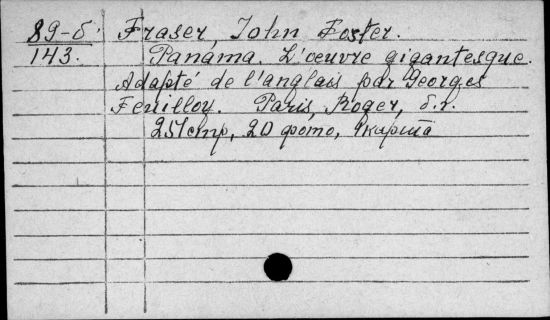 89-5. Fraser, John Foster.
143. Panama. L'œuvre gigantesque.
Adapté de l'anglais par Georges
Feuilloy. Paris, Roger, б.г.
251 стр, 20 фото, 1 карта